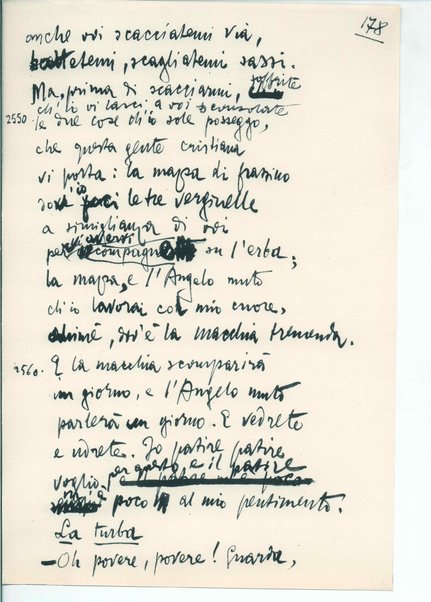 178
anche voi scacciatemi via,
battetemi, scagliatemi sassi.
Ma, prima di scacciarmi, soffrite
ch'io vi lasci a voi sconsolate
2550. le due cose ch'io sole posseggo,
che questa gente cristiana
vi porta: la mazza di frassino
dov'io feci le tre verginelle
a simiglianza di voi
per avervi compagne su l'erba;
la mazza, e l'Angelo muto
ch'io lavorai col mio cuore,
ahimè, dov'è la macchia tremenda.
2560. E la macchia scomparirà
un giorno, e l'Angelo muto
parlerà un giorno. E vedrete
e udrete. Io patire patire
voglio per questo e il patire
m'è poco al mio pentimento.
La turba
— Oh povere, povere! Guarda,